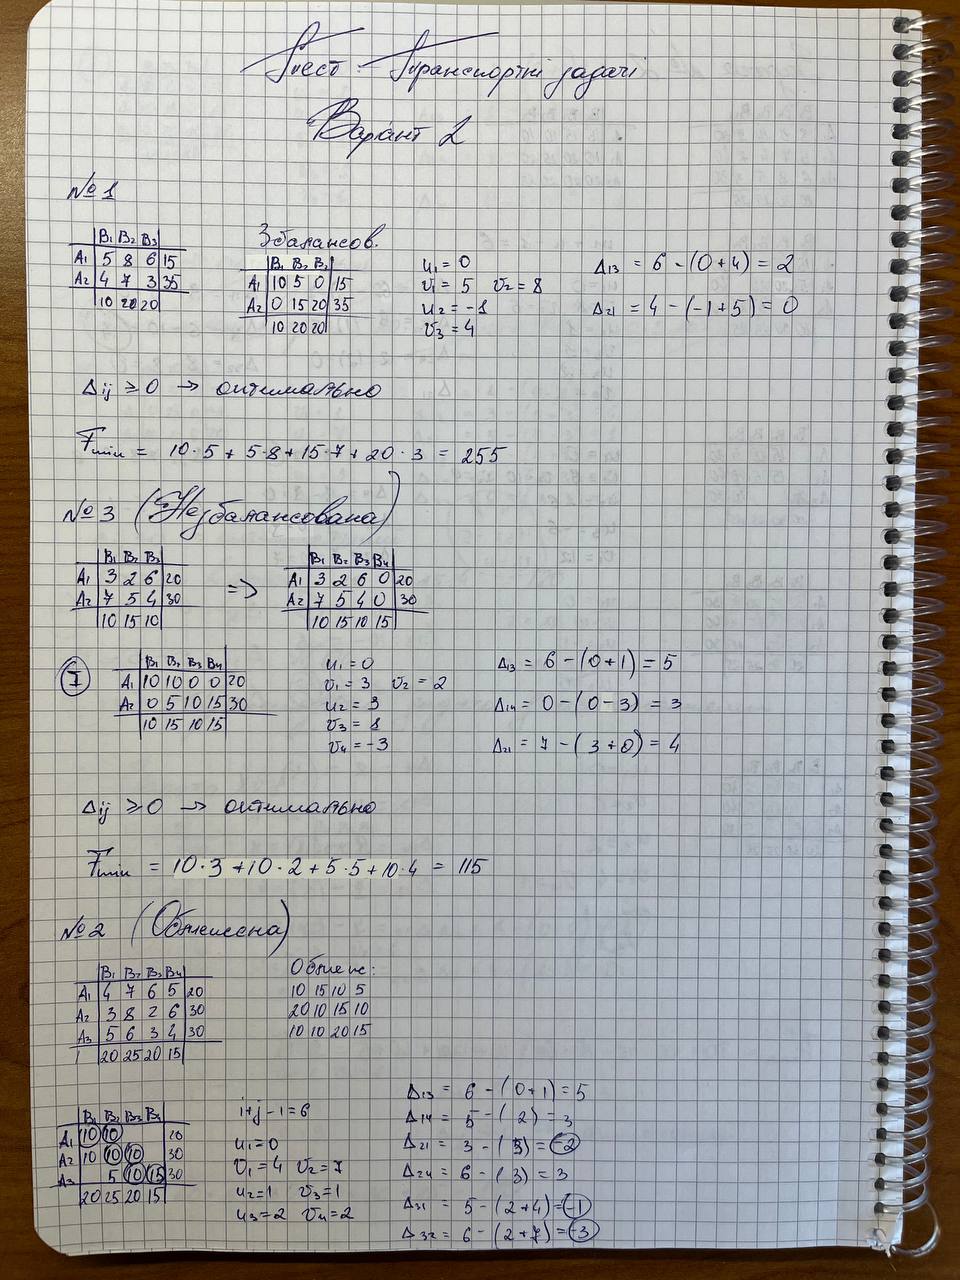 Тест. Транспортні задачі
Варіант 2
№1
B₁ B₂ B₃
A₁ 5 8 6 15
A₂ 4 7 3 35
10 20 20
Збалансов.
B₁ B₂ B₃
A₁ 10 5 0 15
A₂ 0 15 20 35
10 20 20
u₁ = 0
v₁ = 5 v₂ = 8
u₂ = -1
v₃ = 4
Δ₁₃ = 6 - (0+4) = 2
Δ₂₁ = 4 - (-1+5) = 0
Δij ≥ 0 → оптимально
Fmin = 10·5 + 5·8 + 15·7 + 20·3 = 255
№3 (Незбалансована)
B₁ B₂ B₃
A₁ 3 2 6 20
A₂ 7 5 4 30
10 15 10
=>
B₁ B₂ B₃ B₄
A₁ 3 2 6 0 20
A₂ 7 5 4 0 30
10 15 10 15
I
B₁ B₂ B₃ B₄
A₁ 10 10 0 0 20
A₂ 0 5 10 15 30
10 15 10 15
u₁ = 0
v₁ = 3 v₂ = 2
u₂ = 3
v₃ = 1
v₄ = -3
Δ₁₃ = 6 - (0+1) = 5
Δ₁₄ = 0 - (0-3) = 3
Δ₂₁ = 7 - (3+0) = 4
Δij ≥ 0 → оптимально
Fmin = 10·3 + 10·2 + 5·5 + 10·4 = 115
№2 (Обмежена)
B₁ B₂ B₃ B₄
A₁ 4 7 6 5 20
A₂ 3 8 2 6 30
A₃ 5 6 3 4 30
20 25 20 15
Обмеж:
10 15 10 5
20 10 15 10
10 10 20 15
B₁ B₂ B₃ B₄
A₁ 10 10 20
A₂ 10 10 10 30
A₃ 5 10 15 30
20 25 20 15
i+j-1=6
u₁=0
v₁=4 v₂=7
u₂=1 v₃=1
u₃=2 v₄=2
Δ₁₃ = 6 - (0+1) = 5
Δ₁₄ = 5 - (2) = 3
Δ₂₁ = 3 - (5) = -2
Δ₂₄ = 6 - (3) = 3
Δ₃₁ = 5 - (2+4) = -1
Δ₃₂ = 6 - (2+7) = -3